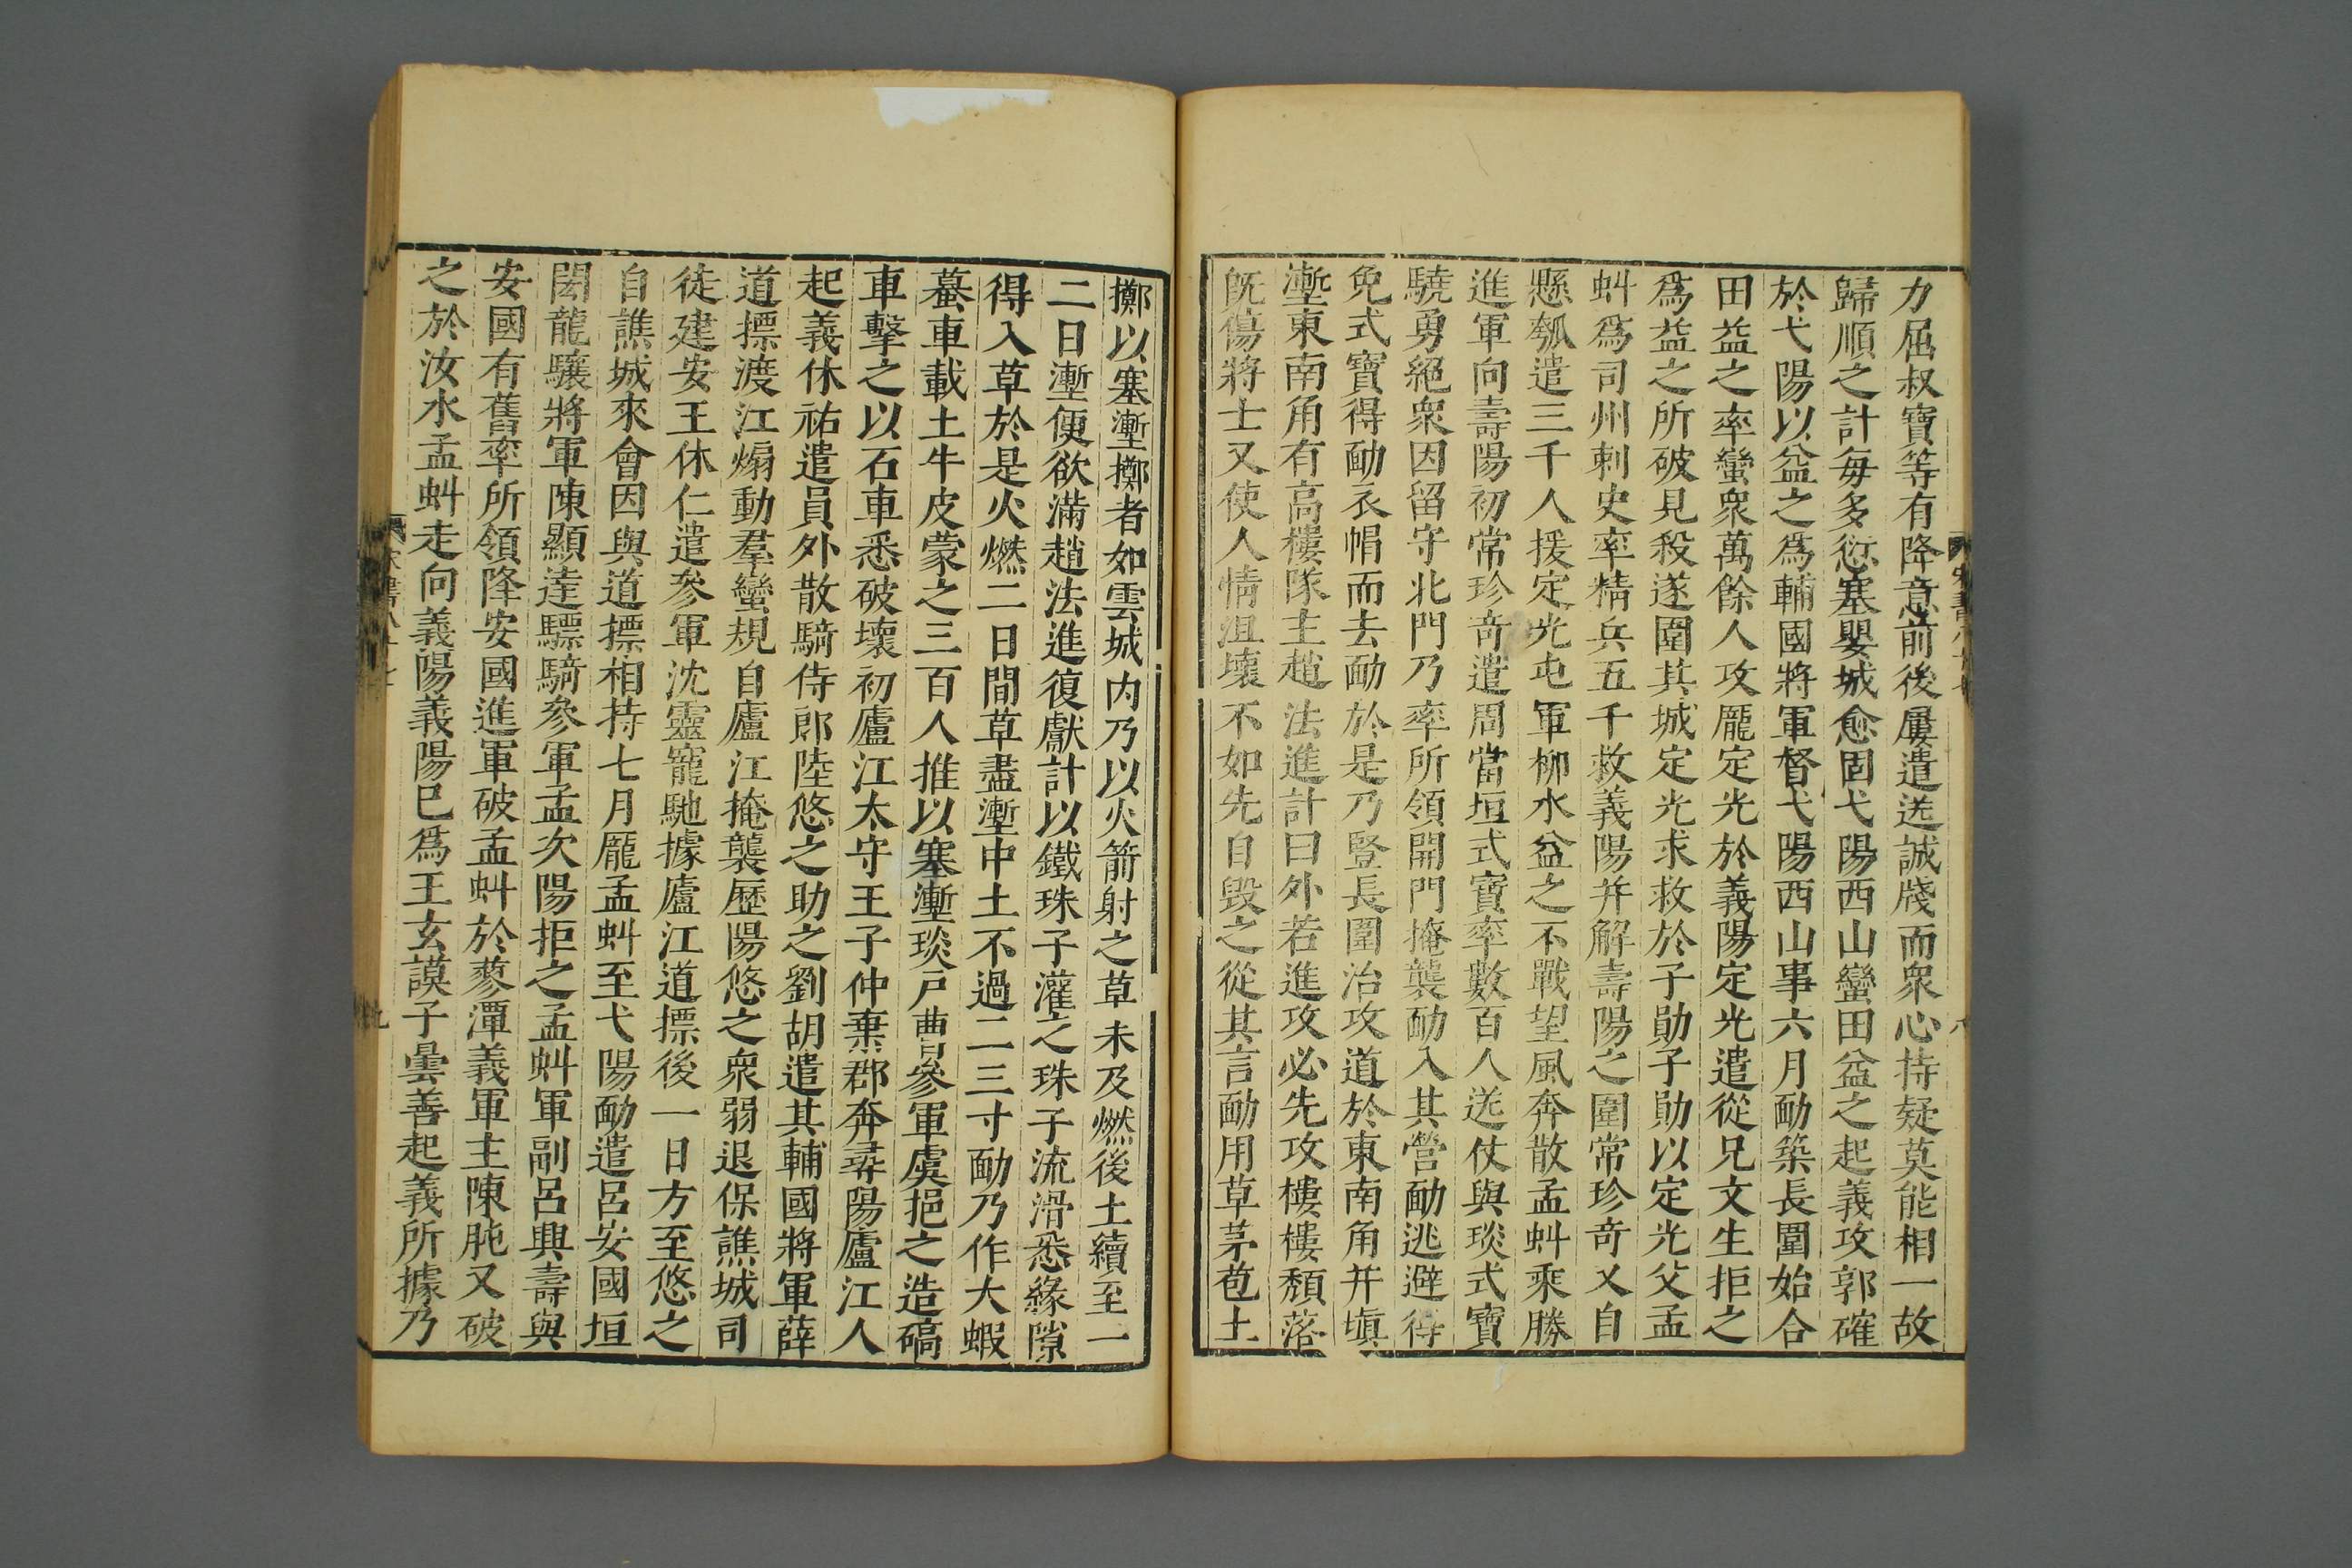 力屈叔寶等有降意前後屢遣送誠牋而衆心持疑莫能相一故
歸順之計每多愆塞嬰城愈固弋陽西山蠻田益之起義攻郭確
於弋陽以益之爲輔國將軍督弋陽西山事六月勔築長圍始合
田益之率蠻衆萬餘人攻龎定光於義陽定光遣從兄文生拒之
爲益之所破見殺遂圍其城定光求救於子勛子勛以定光父孟
虯爲司州刺史率精兵五千救義陽并解壽陽之圍常珍奇又自
懸瓠遣三千人援定光屯軍柳水益之不戰望風奔散孟虯乘勝
進軍向壽陽初常珍奇遣周當垣式寶率數百人送仗與琰式寶
驍勇絕衆因留守北門乃率所領開門掩襲勔入其營勔逃避得
免式寶得勔衣帽而去勔於是乃豎長圍治攻道於東南角并塡
壍東南角有高樓隊主趙法進計曰外若進攻必先攻樓樓頹落
旣傷將士又使人情沮壞不如先自毀之從其言勔用草茅苞土
擲以塞壍擲者如雲城内乃以火箭射之草未及燃後土續至一
二日壍便欲滿趙法進復獻計以鐵珠子灌之珠子流滑悉緣隙
得入草於是火燃二日間草盡壍中土不過二三寸勔乃作大蝦
蟇車載土牛皮蒙之三百人推以塞壍琰戸曹參軍虞挹之造䃚
車擊之以石車悉破壞初廬江太守王子仲棄郡奔尋陽廬江人
起義休祐遣員外散騎侍郎陸悠之助之劉胡遣其輔國將軍薛
道摽渡江煽動羣蠻規自廬江掩襲歷陽悠之衆弱退保譙城司
徒建安王休仁遣參軍沈靈寵馳據廬江道摽後一日方至悠之
自譙城來會因與道摽相持七月龎孟虯至弋陽勔遣呂安國垣
閎龍驤將軍陳顯達驃騎參軍孟次陽拒之孟虯軍副呂興壽與
安國有舊率所領降安國進軍破孟虯於蓼潭義軍主陳肫又破
之於汝水孟虯走向義陽義陽已爲王玄謨子曇善起義所據乃